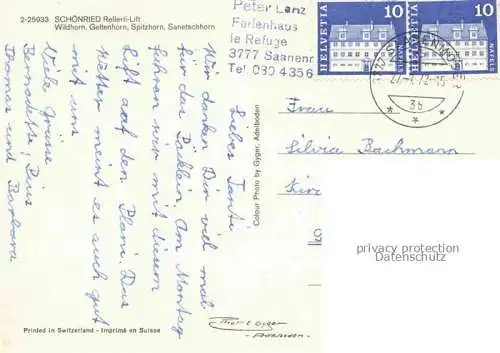 2-25933 SCHÖNRIED Rellerli-Lift
Wildhorn, Geltenhorn, Spitzhorn, Sanetschhorn
Liebes Tanti
Wir danken Dir viel mal
für das Päcklein. Am Montag
fahren wir mit diesem
Lift auf den Plani. Das
Wetter meint es auch gut
mit uns.
Viele Grüsse
Bernadette, Pius
Thomas und Barbara
Printed in Switzerland - Imprimé en Suisse
Colour Photo by Gyger, Adelboden
Peter Lanz
Ferienhaus
le Refuge
3777 Saanenm
Tel 030 4 43 56
HELVETIA 10
NÄFELS
HELVETIA 10
NÄFELS
3777 SAANENMÖSER
36
Frau
Silvia Bachmann
Kir
privacy protection
Datenschutz